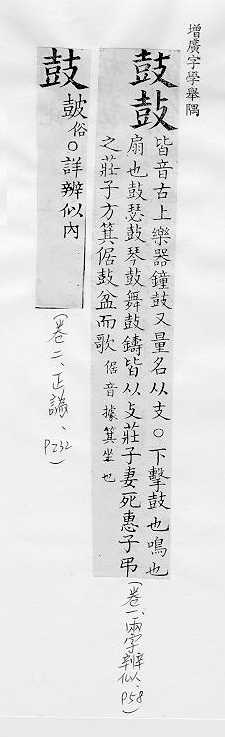 增廣字學舉隅
鼓
鼔
皆音古上樂器鐘鼓又量名从支○下擊鼓也鳴也
扇也鼓瑟鼓琴鼓舞鼓鑄皆从攴莊子妻死惠子弔
之莊子方箕倨鼓盆而歌倨音據箕坐也
(卷一、兩字辨似、P58)
鼓
皷俗○詳辨似內
(卷二、正譌、P232)